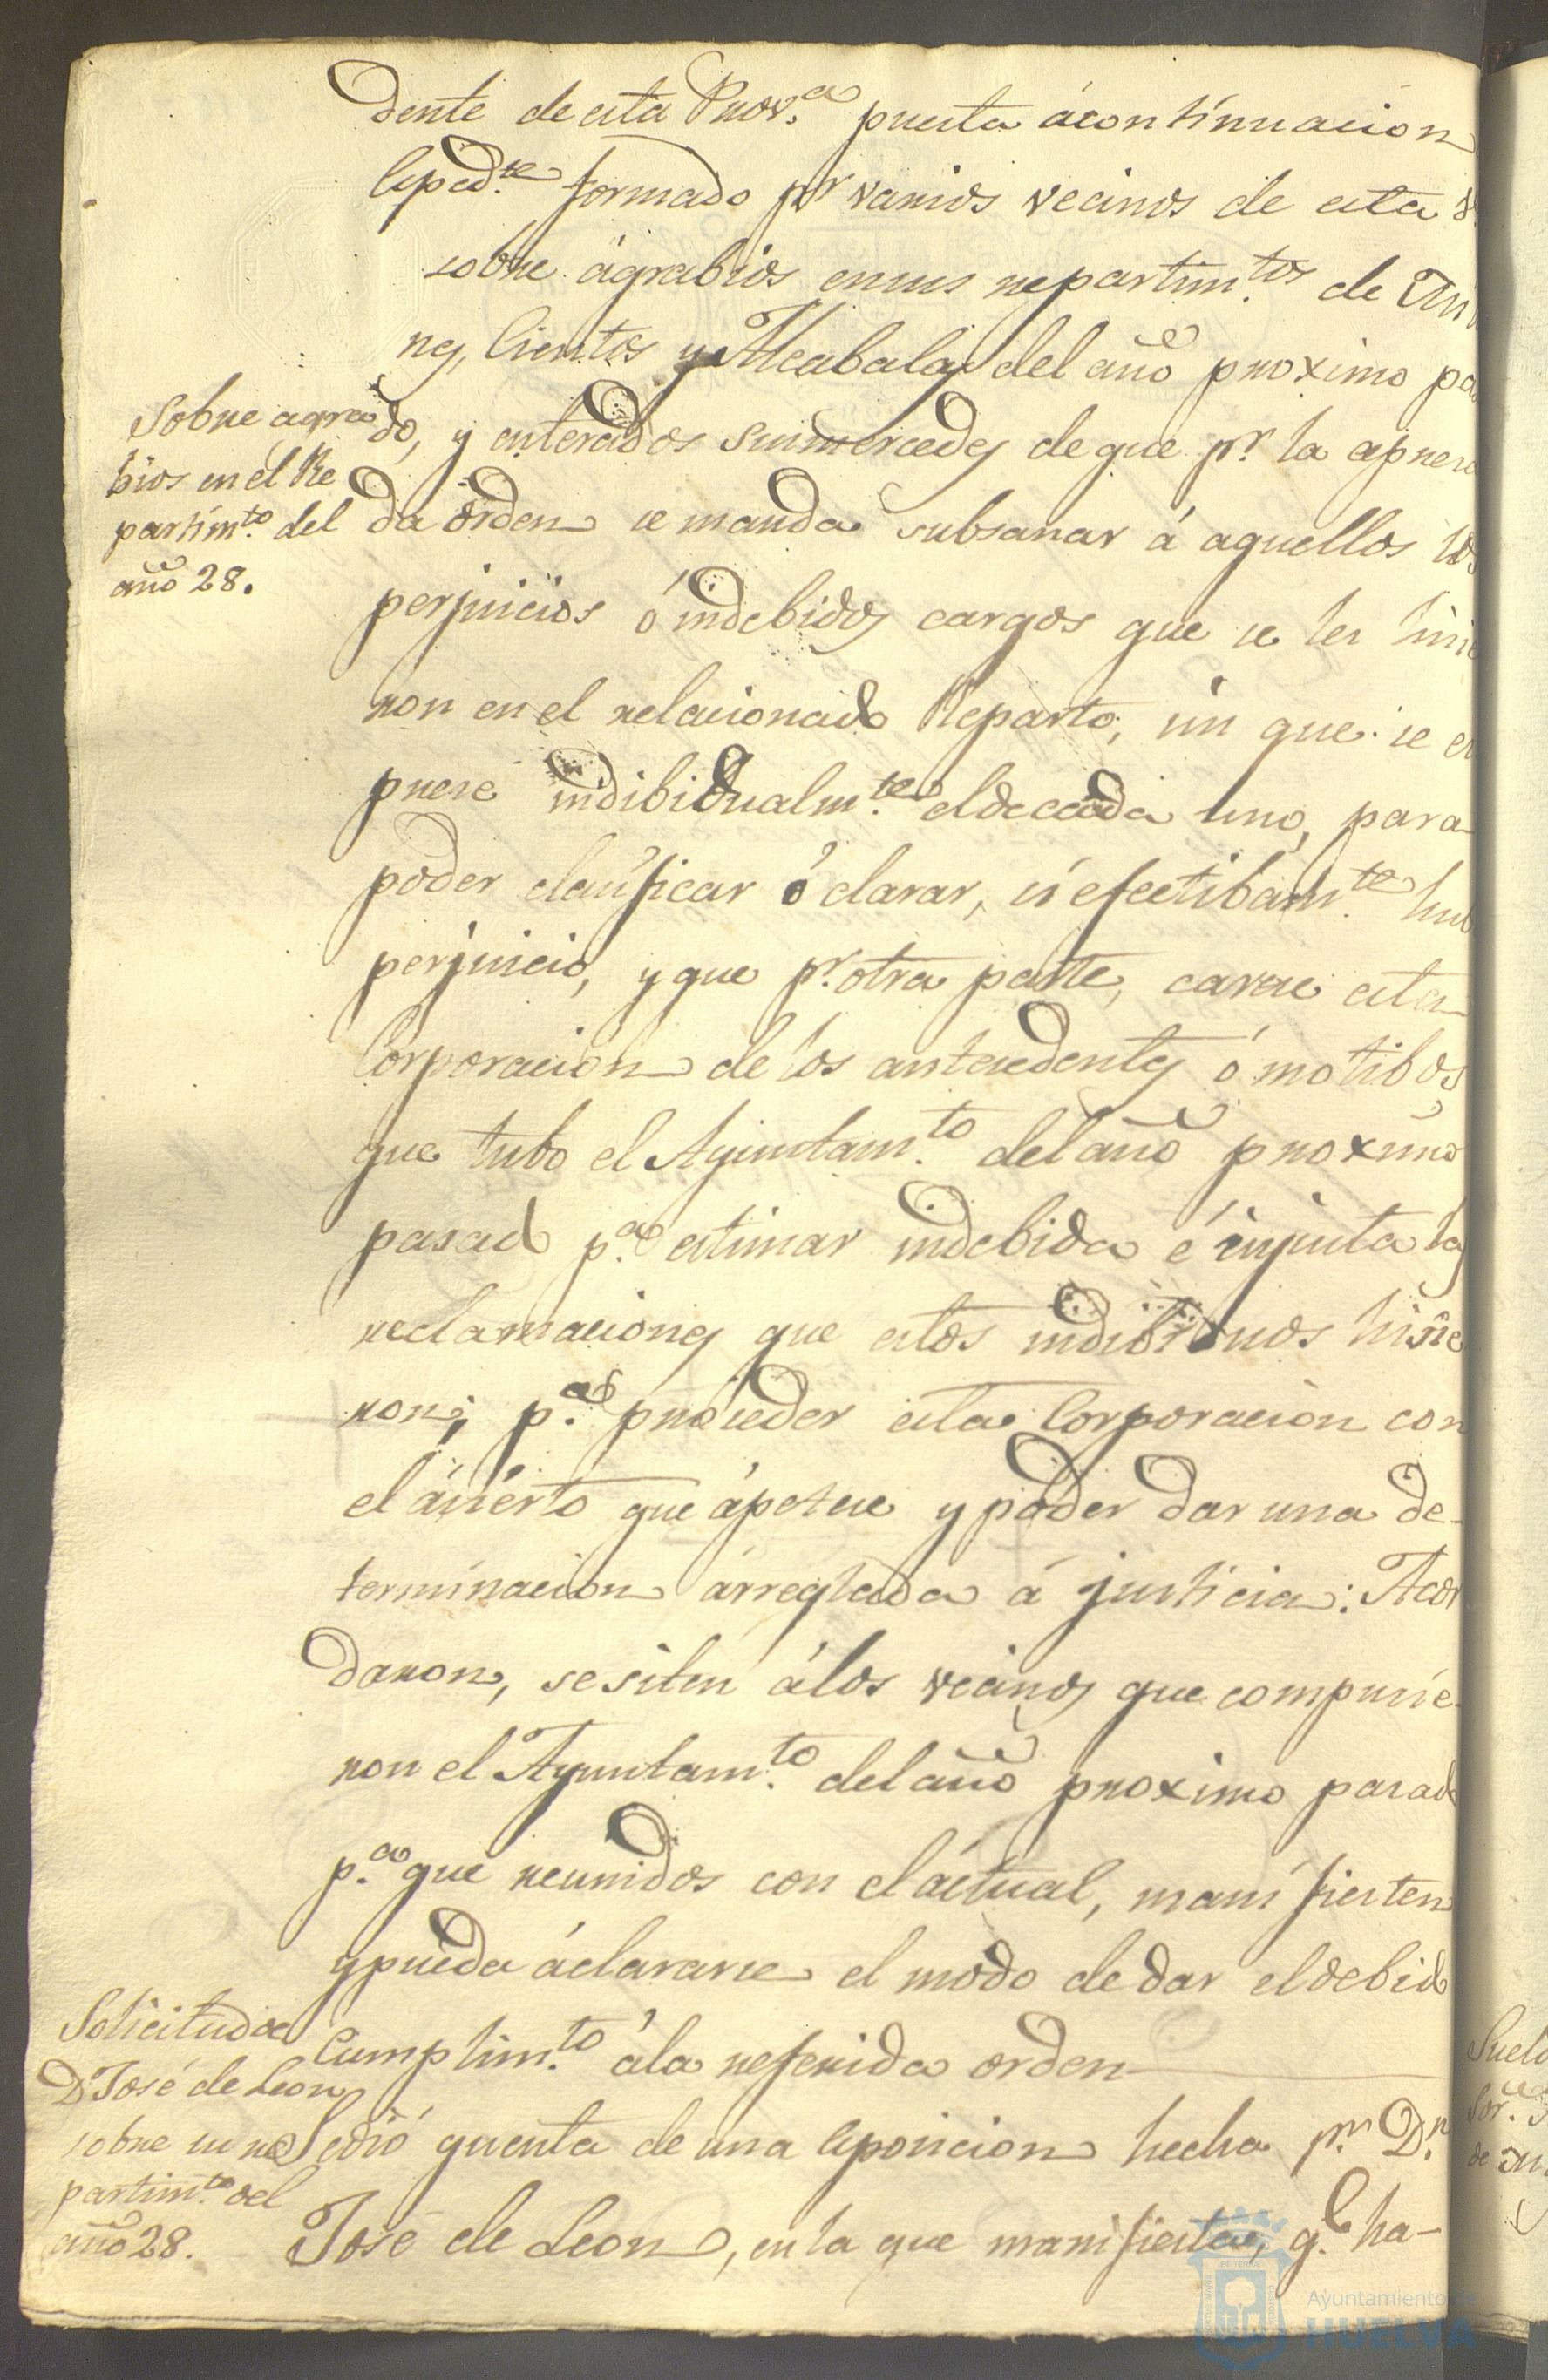 dente de esta Prov.a puesta á continuacion
Esped.te formado p.r varios vecinos de esta v.
sobre ágrabios en sus repartim.tos de
nes, Cientos y Alcabalas del año proximo pa
Sobre agra
bios en el Re
partim.to del
año 28.
do, y enterados sus mercedes de que p.r la aprese
da orden se manda subsanar á aquellos los
perjuicios ó indebidos cargos que se les hicie
ron en el relacionado Reparto, sin que se es
prese indibidualm.te el de cada uno, para
poder clasificar ó clarar, si efectibam.te hub
perjuicio, y que p.r otra parte, carece esta
Corporacion de los antecedentes ó motibos
que tubo el Ayuntam.to del año proximo
pasado p.a estimar indebida é injusta las
reclamaciones que estos indibiduos hicie
ron; p.a proceder esta Corporacion con
el ácierto que ápetece y poder dar una de-
terminacion árreglada á justicia: Acor
daron, se siten á los vecinos que compusie-
ron el Ayuntam.to del año proximo pasado
p.a que reunidos con el áctual, manifiesten
y pueda áclararse el modo de dar el debido
Cumplim.to á la referida orden
Solicitud de
D José de Leon
sobre su re
partim.to del
año 28.
Se dió quenta de una esposicion hecha p.r D.n
José de Leon, en la que manifiesta, q.e ha-
Ayuntamiento de
HUELVA